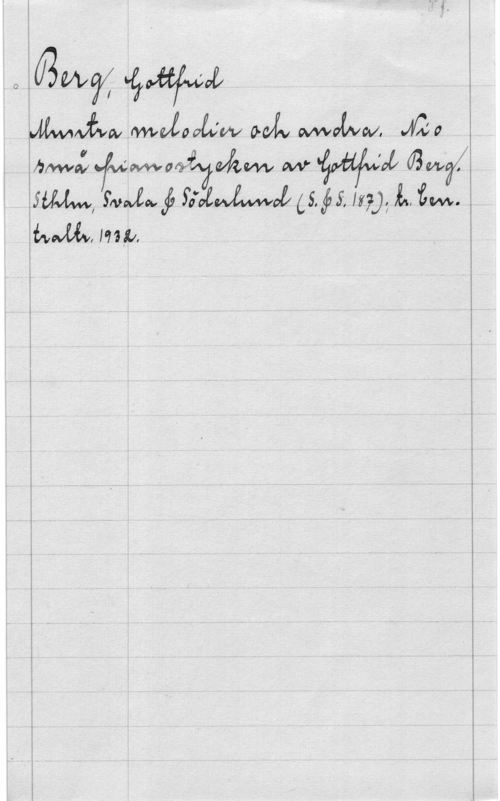 Berg, Gottfrid
Muntra melodier och andra. Nio
små pianostycken av Gottfrid Berg.
Sthlm, Svala & Söderlund (S. & S. 187); tr. Cen-
traltr. 1932.